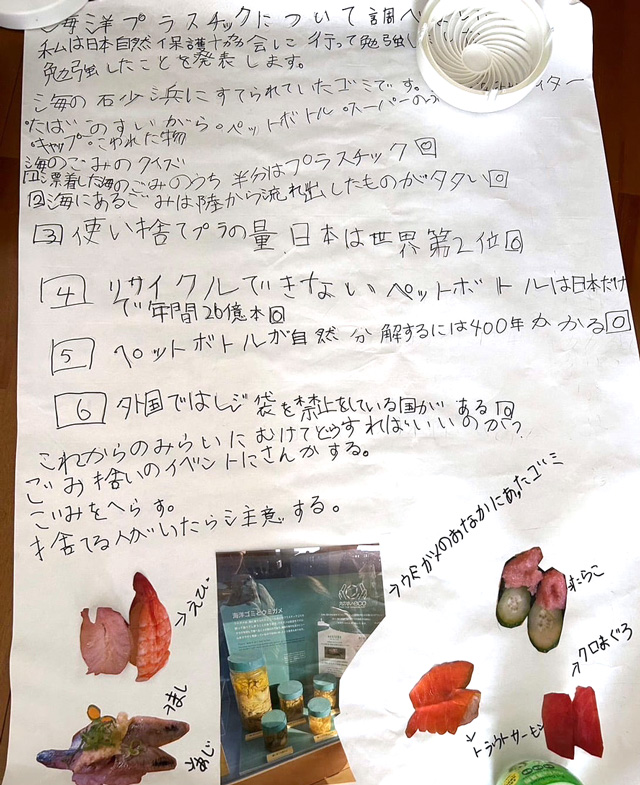 海洋プラスチックについて調べ
私は日本自然保護協会に行って勉強し
勉強したことを発表します。
海の石少浜にすてられていたゴミです。 イター
たばこのすいがら・ペットボトル・スーパーのふ
キャップ・こわれた物
海のごみのクイズ
1 漂着した海のごみのうち半分はプラスチック○
2 海にあるごみは陸から流れ出したものが多い○
3 使い捨てプラの量日本は世界第2位○
4 リサイクルできないペットボトルは日本だけ
で年間26億本○
5 ペットボトルが自然分解するには400年かかる○
6 外国ではレジ袋を禁止をしている国がある○
これからのみらいにむけてどうすればいいのか?
ごみ拾いのイベントにさんかする。
ごみをへらす。
捨てる人がいたら注意する。
→ウミガメのおなかにあったゴミ
海洋ゴミとウミガメ
→えび
たらこ
→クロまぐろ
→トラウトサーモン
あじ